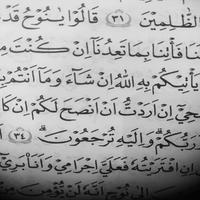 ٱلظَّٰلِمِينَ ٣١ قَالُوا۟ يَٰنُوحُ قَدْ
نَا فَأْتِنَا بِمَا تَعِدُنَآ إِن كُنتَ مِنَ
يَأْتِيكُم بِهِ ٱللَّهُ إِن شَآءَ وَمَآ أَنتُم
حِىٓ إِنْ أَرَدتُّ أَنْ أَنصَحَ لَكُمْ إِن كَا
رَبُّكُمْ وَإِلَيْهِ تُرْجَعُونَ ٣٤
إِنِ ٱفْتَرَيْتُهُۥ فَعَلَىَّ إِجْرَامِى وَأَنَا۠ بَرِىٓ
إِلَىٰ نُوحٍ أَنَّهُۥ لَن يُؤْمِنَ